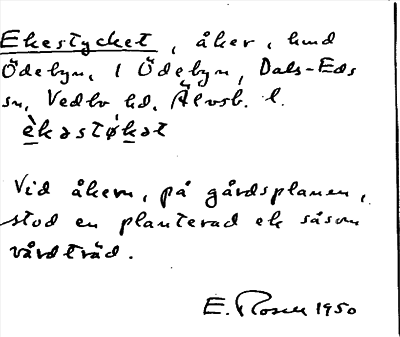 Ekestycket, åker, hmd
Ödebyn, 1 Ödebyn, Dals-Eds
sn, Vedbo hd. Älvsb. l.
èkəstø̀kət
Vid åkern, på gårdsplanen,
stod en planterad ek såsom
vårdträd.
E. Rosell 1950